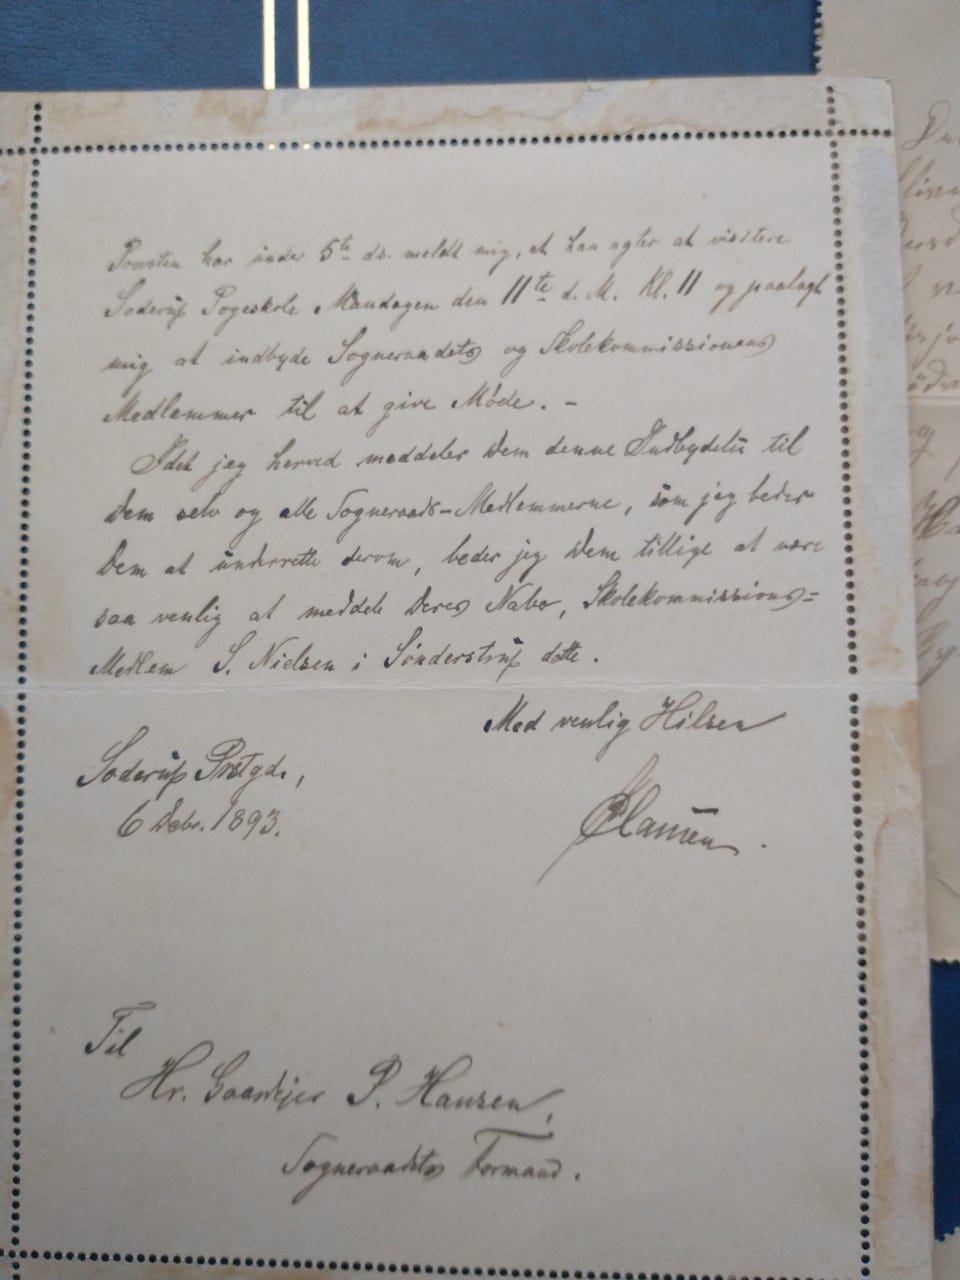 Provsten har under 5te ds. meldt mig, at han agter at visitere
Soderup Pogeskole Mandagen den 11te d. M. Kl. 11 og paalagt
mig at indbyde Sogneraadets og Skolekommissionens
Medlemmer til at give Møde. -
Idet jeg herved meddeler Dem denne Indbydelse til
Dem selv og alle Sogneraads-Medlemmerne, som jeg beder
Dem at underrette derom, beder jeg Dem tillige at være
saa venlig at meddele Deres Nabo, Skolekommissions=
Medlem S. Nielsen i Sønderstrup dette.
Med venlig Hilsen
Soderup Prstgd.,
6 Debr. 1893.
Clausen.
Til
Hr. Gaardejer P. Hansen,
Sogneraadets Formand.